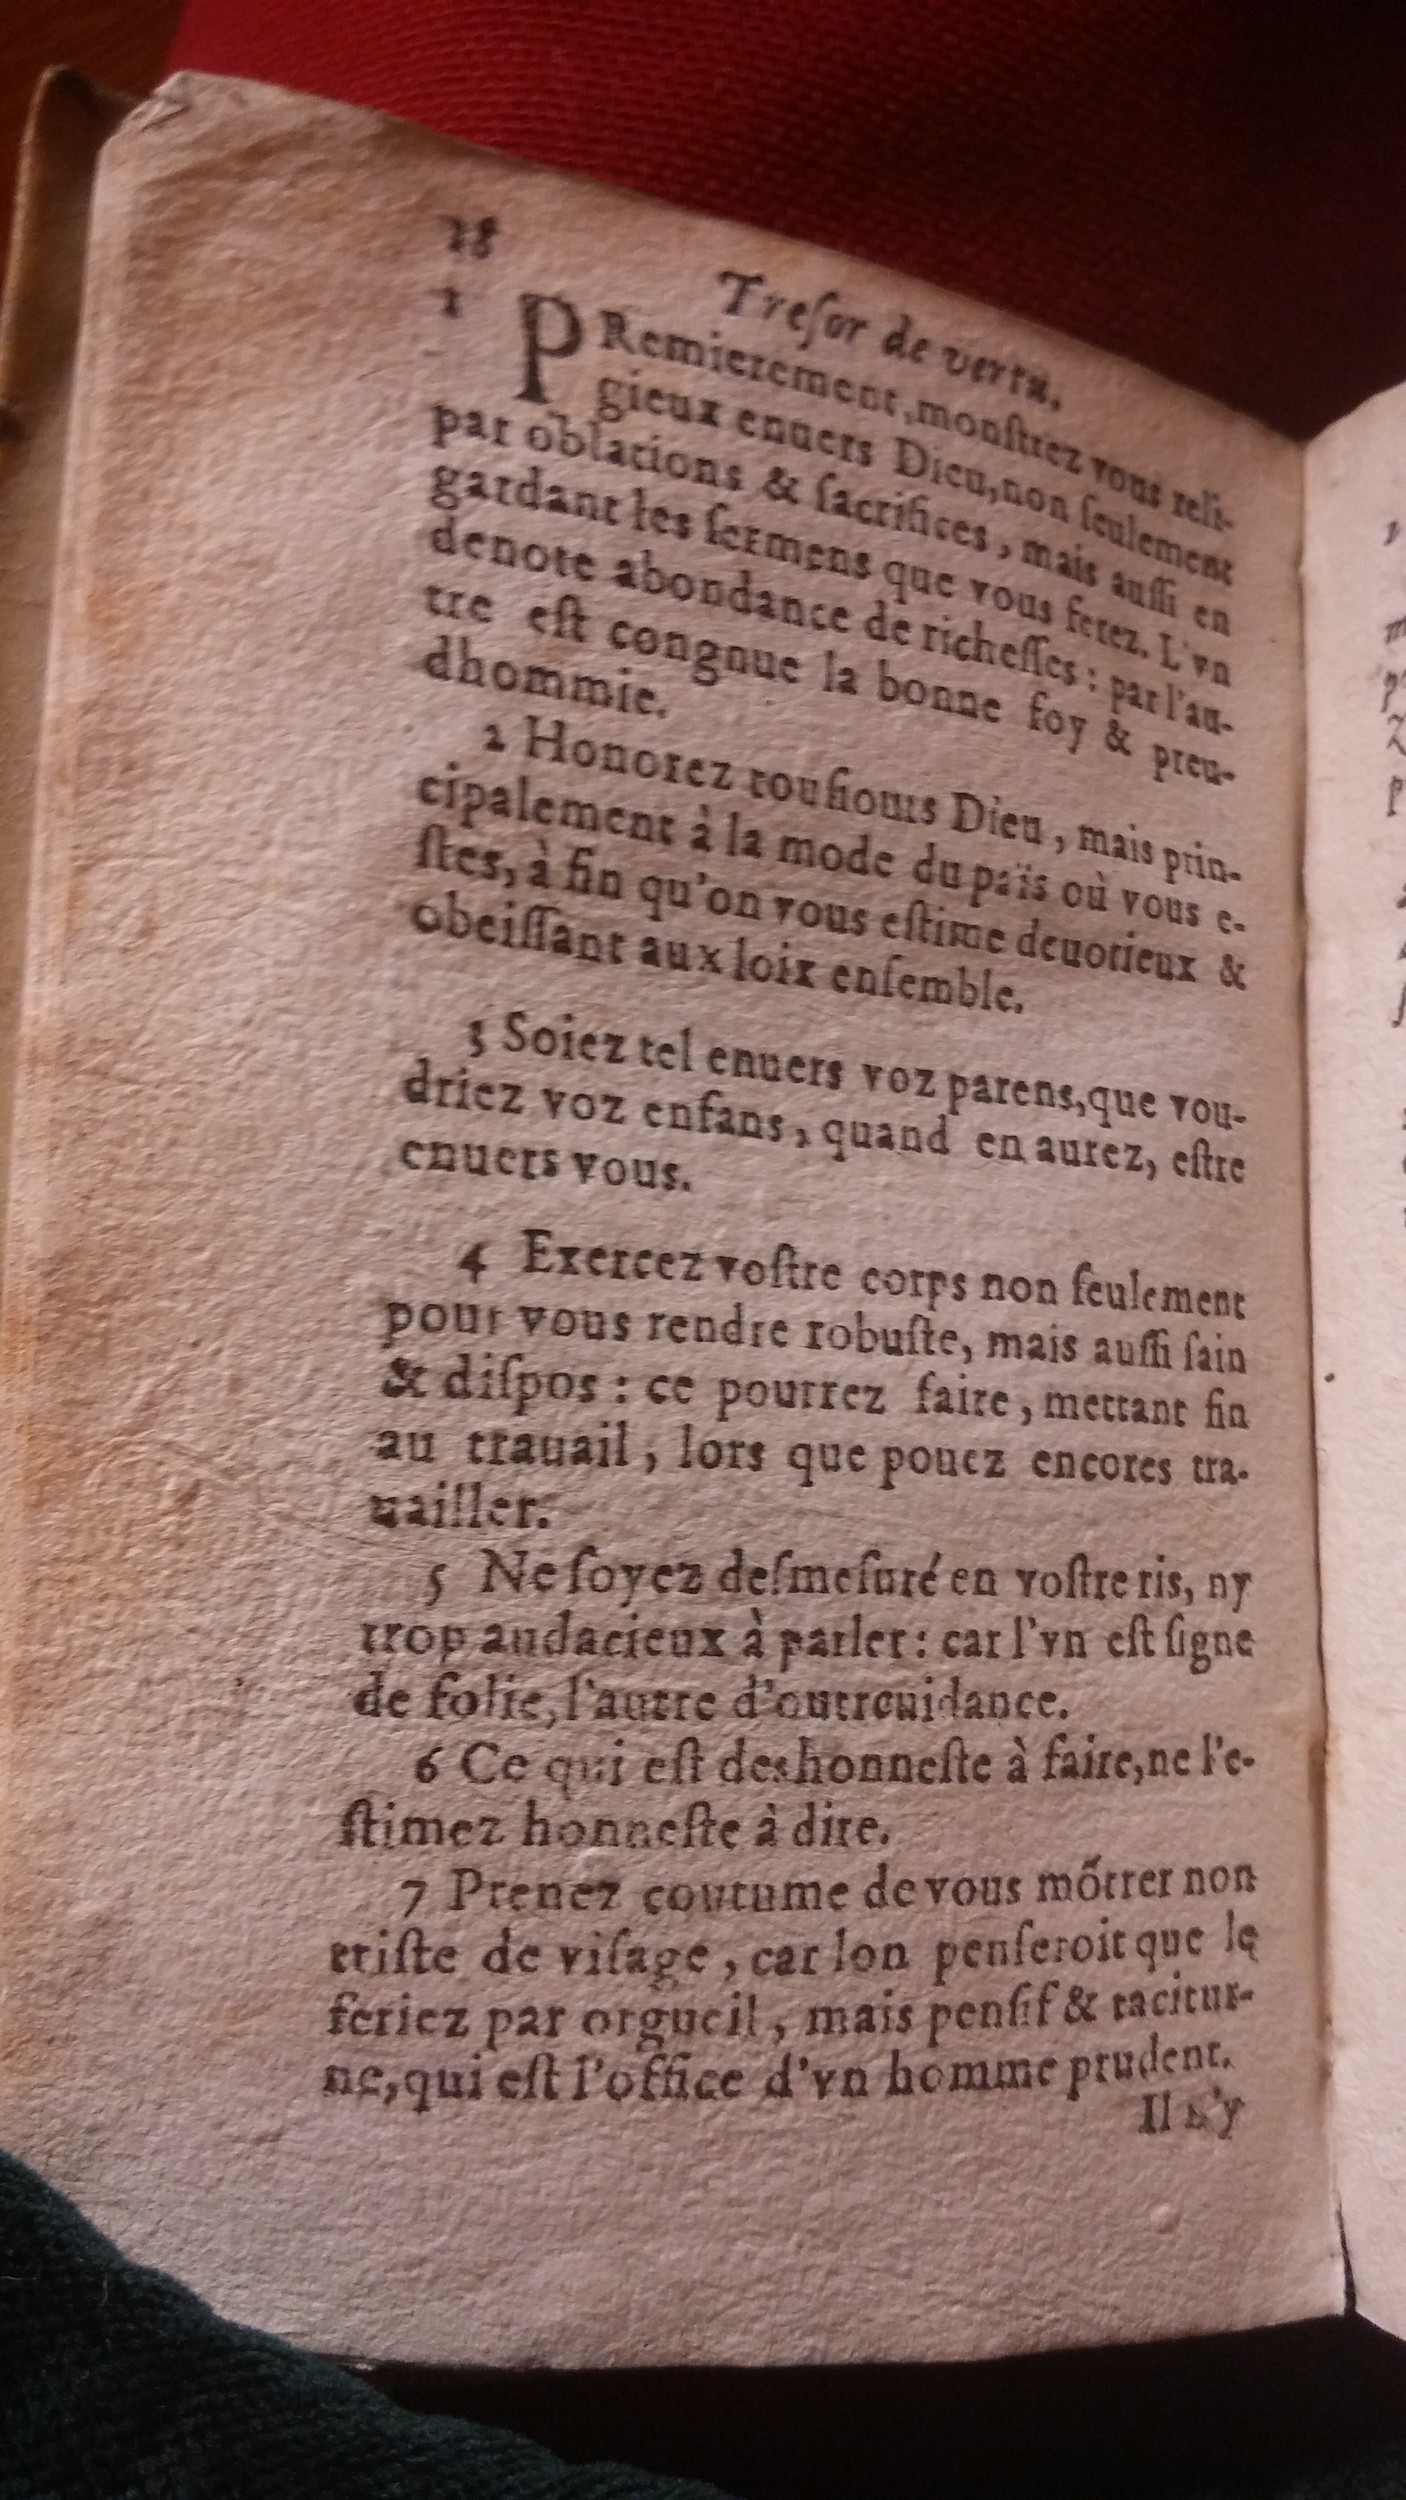 18
Treſor de vertu.
1 PRemierement, monſtrez vous reli-
gieux enuers Dieu, non ſeulement
par oblations & ſacrifices, mais auſſi en
gardant les ſermens que vous ferez. L'vn
denote abondance de richeſſes : par l'au-
tre eſt congnue la bonne foy & preu-
dhommie.
2 Honorez touſiours Dieu, mais prin-
cipalement à la mode du païs où vous e-
ſtes, à fin qu'on vous eſtime deuotieux &
obeiſſant aux loix enſemble.
3 Soiez tel enuers voz parens, que vou-
driez voz enfans, quand en aurez, eſtre
enuers vous.
4 Exercez voſtre corps non ſeulement
pour vous rendre robuſte, mais auſſi ſain
& diſpos : ce pourrez faire, mettant fin
au trauail, lors que pouez encores tra-
uailler.
5 Ne ſoyez deſmeſuré en voſtre ris, ny
trop audacieux à parler : car l'vn eſt ſigne
de folie, l'autre d'outrecuidance.
6 Ce qui eſt deshonneſte à faire, ne l'e-
ſtimez honneſte à dire.
7 Prenez coutume de vous mõtrer non
triſte de viſage, car lon penſeroit que le
feriez par orgueil, mais penſif & tacitur-
ne, qui eſt l'office d'vn homme prudent.
Il n'y